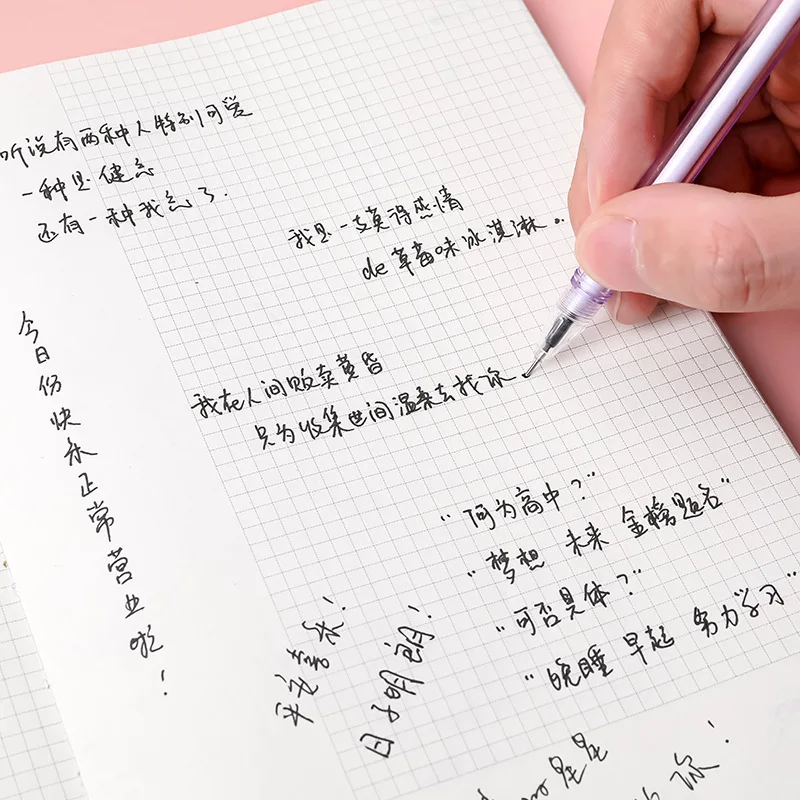 听说有两种人特别可爱
一种是健忘
还有一种我忘了.
我是一支莫得感情
de草莓味冰淇淋。
我在人间贩卖黄昏
只为收集世间温柔去找你.
今日份快乐正常营业啦！
"何为高中？"
"梦想 未来 金榜题名"
"可否具体？"
"晚睡 早起 努力学习"
平安喜乐！
日子明朗！
星星
你！